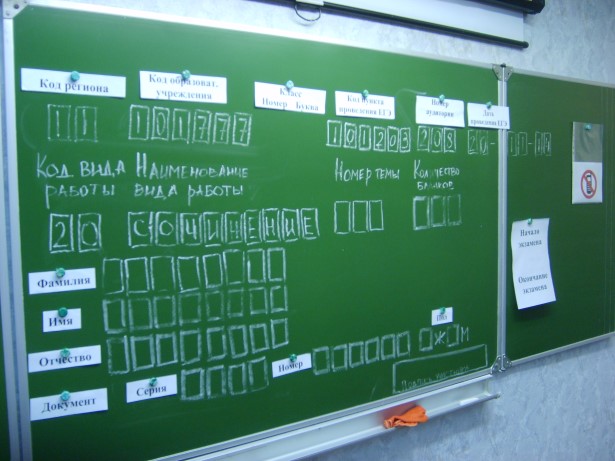 Код региона
Код образоват.
учреждения
Класс
Номер Буква
Код пункта
проведения ЕГЭ
Номер
аудитории
Дата
проведения ЕГЭ
11 101777 101203 208 20-11-07
КОД ВИДА НАИМЕНОВАНИЕ НОМЕР ТЕМЫ КОЛИЧЕСТВО
РАБОТЫ ВИДА РАБОТЫ БЛАНКОВ
20 СОЧИНЕНИЕ
Фамилия
Имя
Отчество
Пол
Документ Серия Номер Ж М
Начало
экзамена
Окончание
экзамена